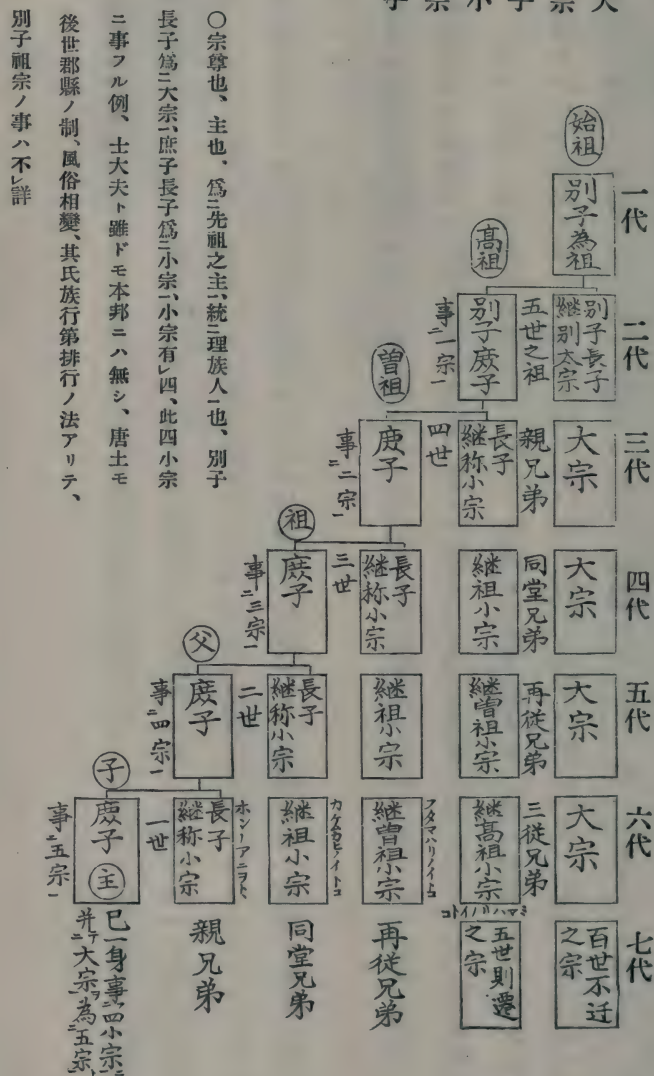 大宗子小宗子
一代
二代
三代
四代
五代
六代
七代
始祖
別子為祖
別子長子
継別太宗
大宗
大宗
大宗
大宗
百世不迁
之宗
五世之祖
親兄弟
同堂兄弟
再従兄弟
三従兄弟
高祖
別子庶子
事二一宗一
長子
継称小宗
継祖小宗
継曽祖小宗
継高祖小宗
ミマハリノイトコ
五世則遷
之宗
四世
曽祖
庶子
事二二宗一
長子
継称小宗
継祖小宗
継曽祖小宗
フタマハリノイトコ
再従兄弟
三世
祖
庶子
事二三宗一
長子
継称小宗
継祖小宗
同堂兄弟
二世
父
庶子
事二四宗一
長子
継称小宗
親兄弟
一世
子
庶子 主
事二五宗一
已一身事二四小宗一
并テ大宗ヲ為二五宗一
○宗尊也、主也、爲二先祖之主一、統二理族人一也、別子
長子爲二大宗一、庶子長子爲二小宗一、小宗有レ四、此四小宗
ニ事フル例、士大夫ト雖ドモ本邦ニハ無シ、唐土モ
後世郡縣ノ制、風俗相變、其氏族行第排行ノ法アリテ、
別子祖宗ノ事ハ不レ詳